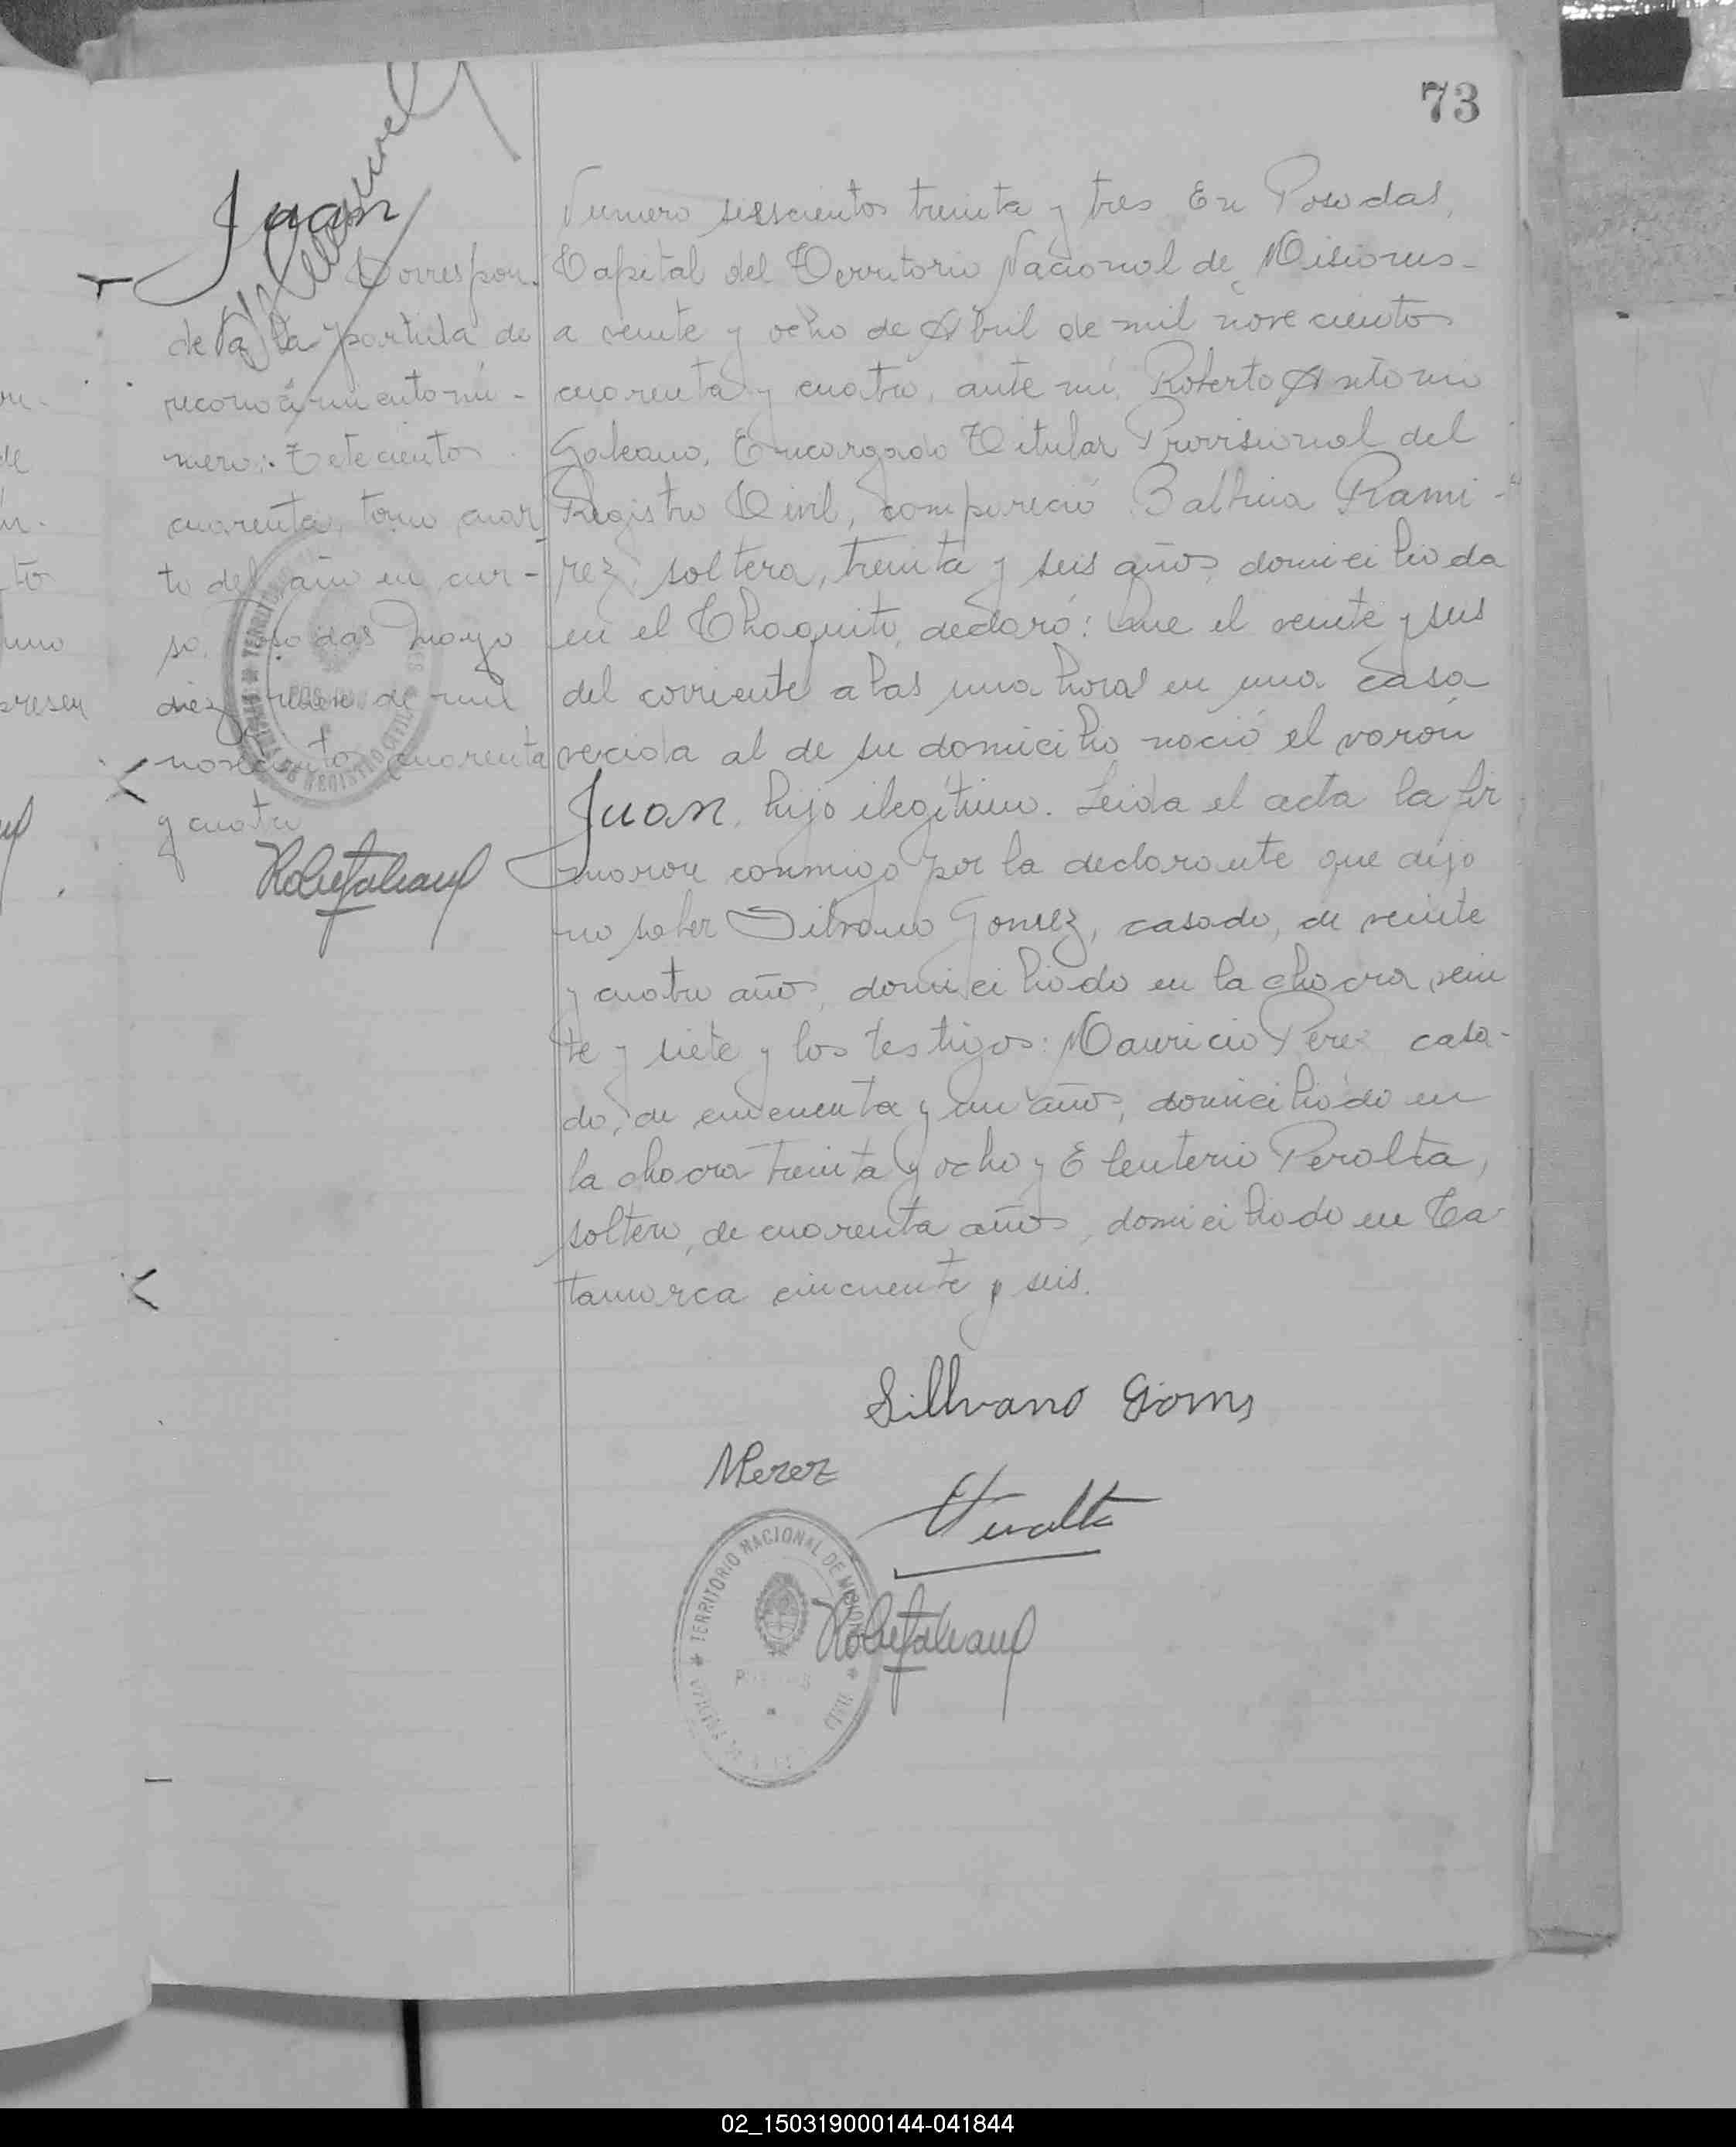 73
Juan
Correspon-
de a la partida de
reconocimiento nú-
mero: Setecientos
cuarenta, tomo cuar
to del año en cur-
so. Posadas Mayo
diez de mil
novecientos cuarenta
y cuatro
Numero seiscientos treinta y tres En Posadas,
Capital del Territorio Nacional de Misiones-
a veinte y ocho de Abril de mil novecientos
cuarenta y cuatro, ante mi, Roberto Antonio
Galeano, Encargado Titular Provisional del
Registro Civil, compareció Balbina Rami-
rez, soltera, treinta y seis años, domiciliada
en el Chaquito, declaró: Que el veinte y seis
del corriente a las una hora en una casa
vecida al de su domicilio nació el varón
Juan, hijo ilegítimo. Leida el acta la fir
maron conmigo por la declarante que dijo
no saber Silvano Gomez, casado, de veinte
y cuatro años, domiciliado en la chacra vein
te y siete y los testigos: Mauricio Perez casa-
do, de cincuenta y un años, domiciliado en
la chacra treinta y ocho y Eleuterio Peralta,
soltero, de cuarenta años, domiciliado en Ca-
tamarca cincuenta y seis.
Sillvano Goms
MPerez
Peralta
TERRITORIO NACIONAL DE MISIONES
CIVIL
02_150319000144-041844